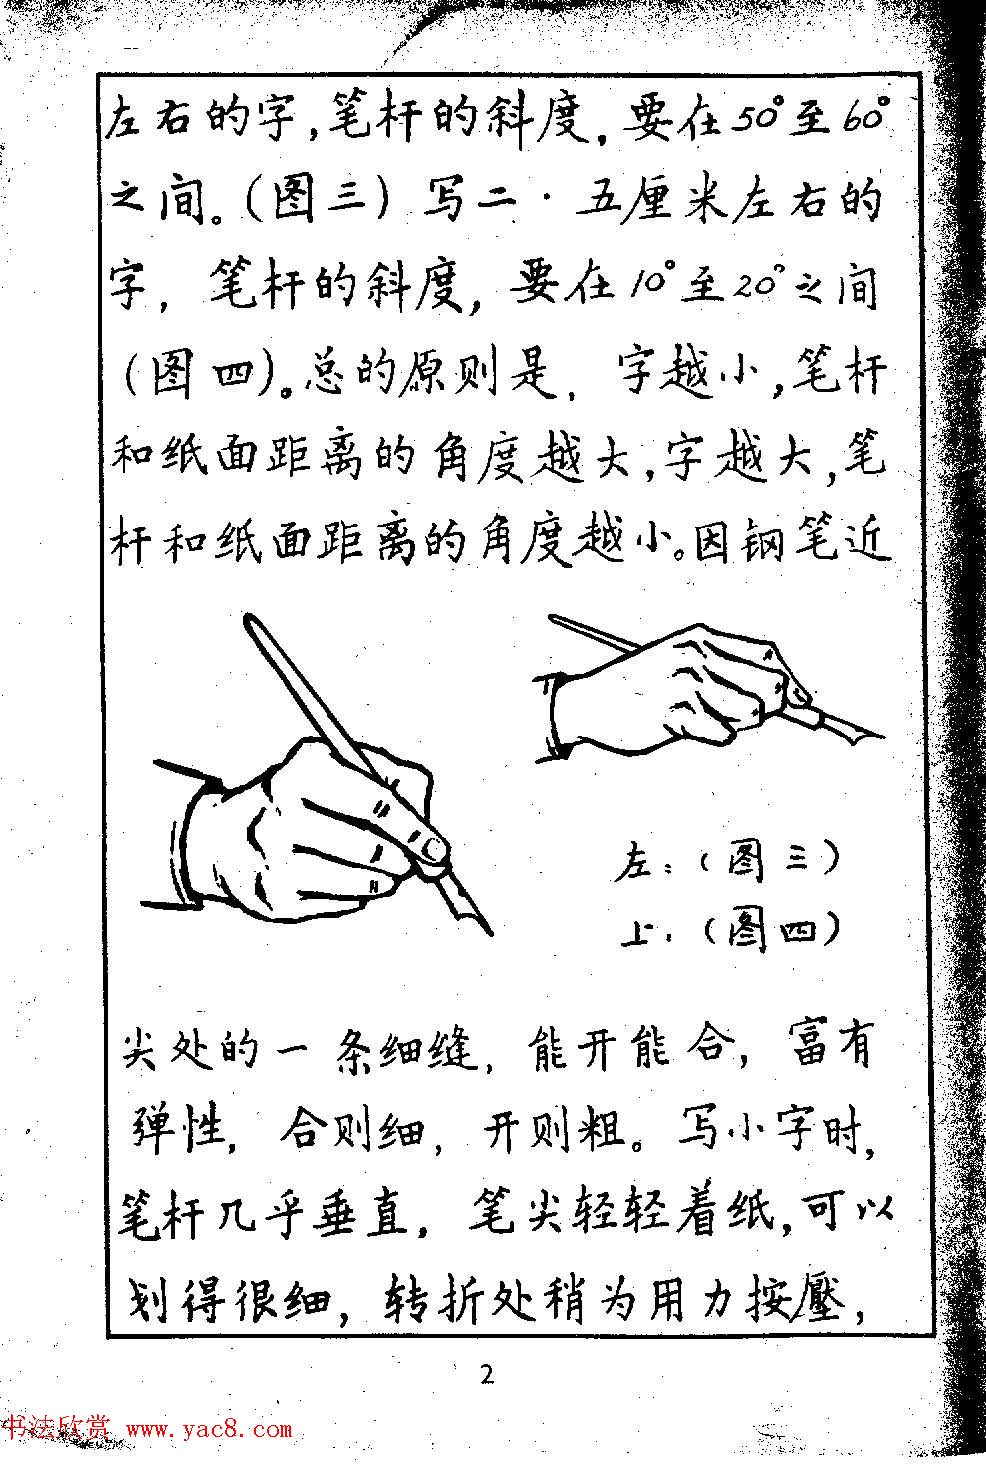 左右的字,笔杆的斜度,要在50°至60°
之间。(图三)写二·五厘米左右的
字,笔杆的斜度,要在10°至20°之间
(图四)。总的原则是,字越小,笔杆
和纸面距离的角度越大,字越大,笔
杆和纸面距离的角度越小。因钢笔近
左:(图三)
上:(图四)
尖处的一条细缝,能开能合,富有
弹性,合则细,开则粗。写小字时,
笔杆几乎垂直,笔尖轻轻着纸,可以
划得很细,转折处稍为用力按壓,
2
书法欣赏 www.yac8.com